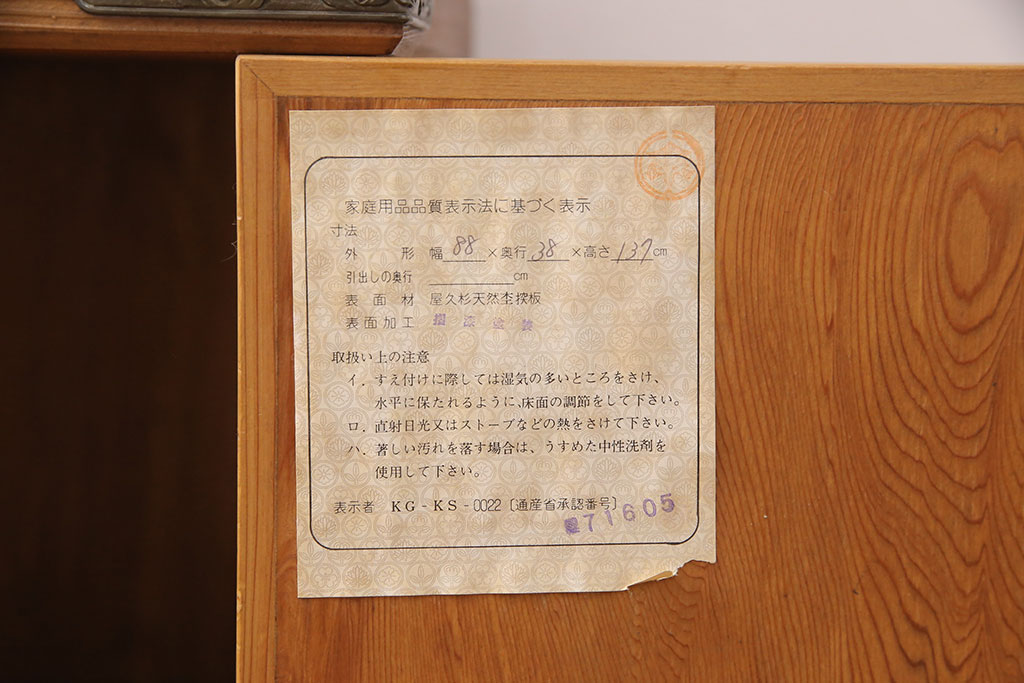 家庭用品品質表示法に基づく表示
寸法
外形 幅 88 ×奥行 38 ×高さ 137 cm
引出しの奥行 cm
表面材 屋久杉天然杢突板
表面加工 摺漆塗装
取扱い上の注意
イ．すえ付けに際しては湿気の多いところをさけ、
水平に保たれるように、床面の調節をして下さい。
ロ．直射日光又はストーブなどの熱をさけて下さい。
ハ．著しい汚れを落す場合は、うすめた中性洗剤を
使用して下さい。
表示者 KG-KS-0022〔通産省承認番号〕
71605